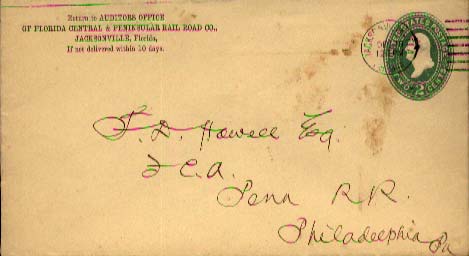 Return to AUDITORS OFFICE
OF FLORIDA CENTRAL & PENINSULAR RAIL ROAD CO.,
JACKSONVILLE, Florida,
If not delivered within 10 days.
UNITED STATES POSTAGE
TWO CENTS
2
D. Howell Esq.
C.A.
Penn R.R.
Philadelphia Pa